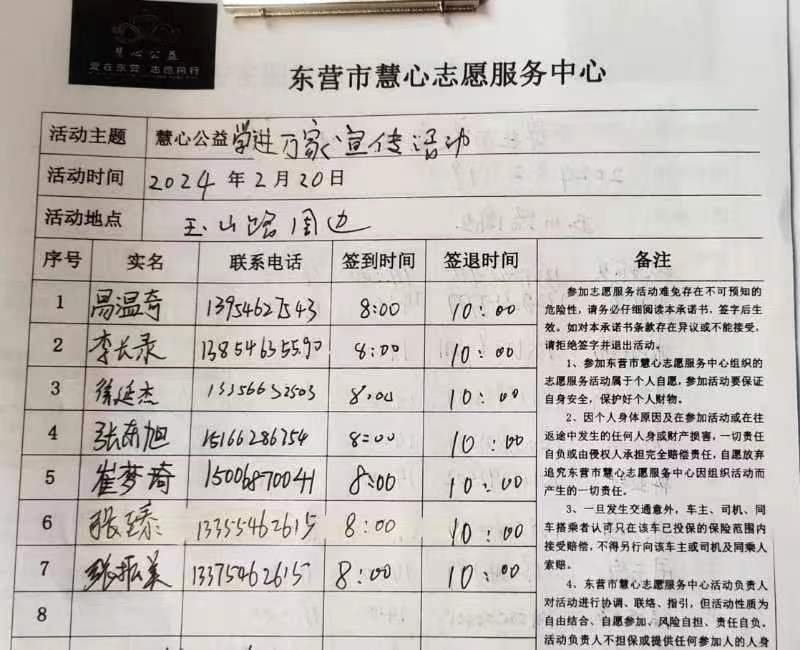 慧心公益
爱在东营·志愿同行
东营市慧心志愿服务中心
活动主题 慧心公益学进万家宣传活动
活动时间 2024年2月20日
活动地点 玉山路周边
序号 实名 联系电话 签到时间 签退时间 备注
1 13954627543 8:00 10:00
2 李长录 13854635590 8:00 10:00
3 徐延杰 8:00 10:00
4 15166286754 8:00 10:00
5 崔梦琦 15006870041 8:00 10:00
6 13355462615 8:00 10:00
7 张振美 13375462615 8:00 10:00
8
参加志愿服务活动难免存在不可预知的
危险性，请务必仔细阅读本承诺书，签字后生
效。如对本承诺书条款存在异议或不能接受，
请拒绝签字并退出活动。
1、参加东营市慧心志愿服务中心组织的
志愿服务活动属于个人自愿，参加活动要保证
自身安全，保护好个人财物。
2、因个人身体原因及在参加活动或在往
返途中发生的任何人身或财产损害，一切责任
自负或由侵权人承担完全赔偿责任，自愿放弃
追究东营市慧心志愿服务中心因组织活动而
产生的一切责任。
3、一旦发生交通意外，车主、司机、同
车搭乘者认可只在该车已投保的保险范围内
接受赔偿，不得另行向该车主或司机及同乘人
索赔。
4、东营市慧心志愿服务中心活动负责人
对活动进行协调、联络、指引，但活动性质为
自由结合、自愿参加、风险自担、责任自负。
活动负责人不担保或提供任何参加人的人身